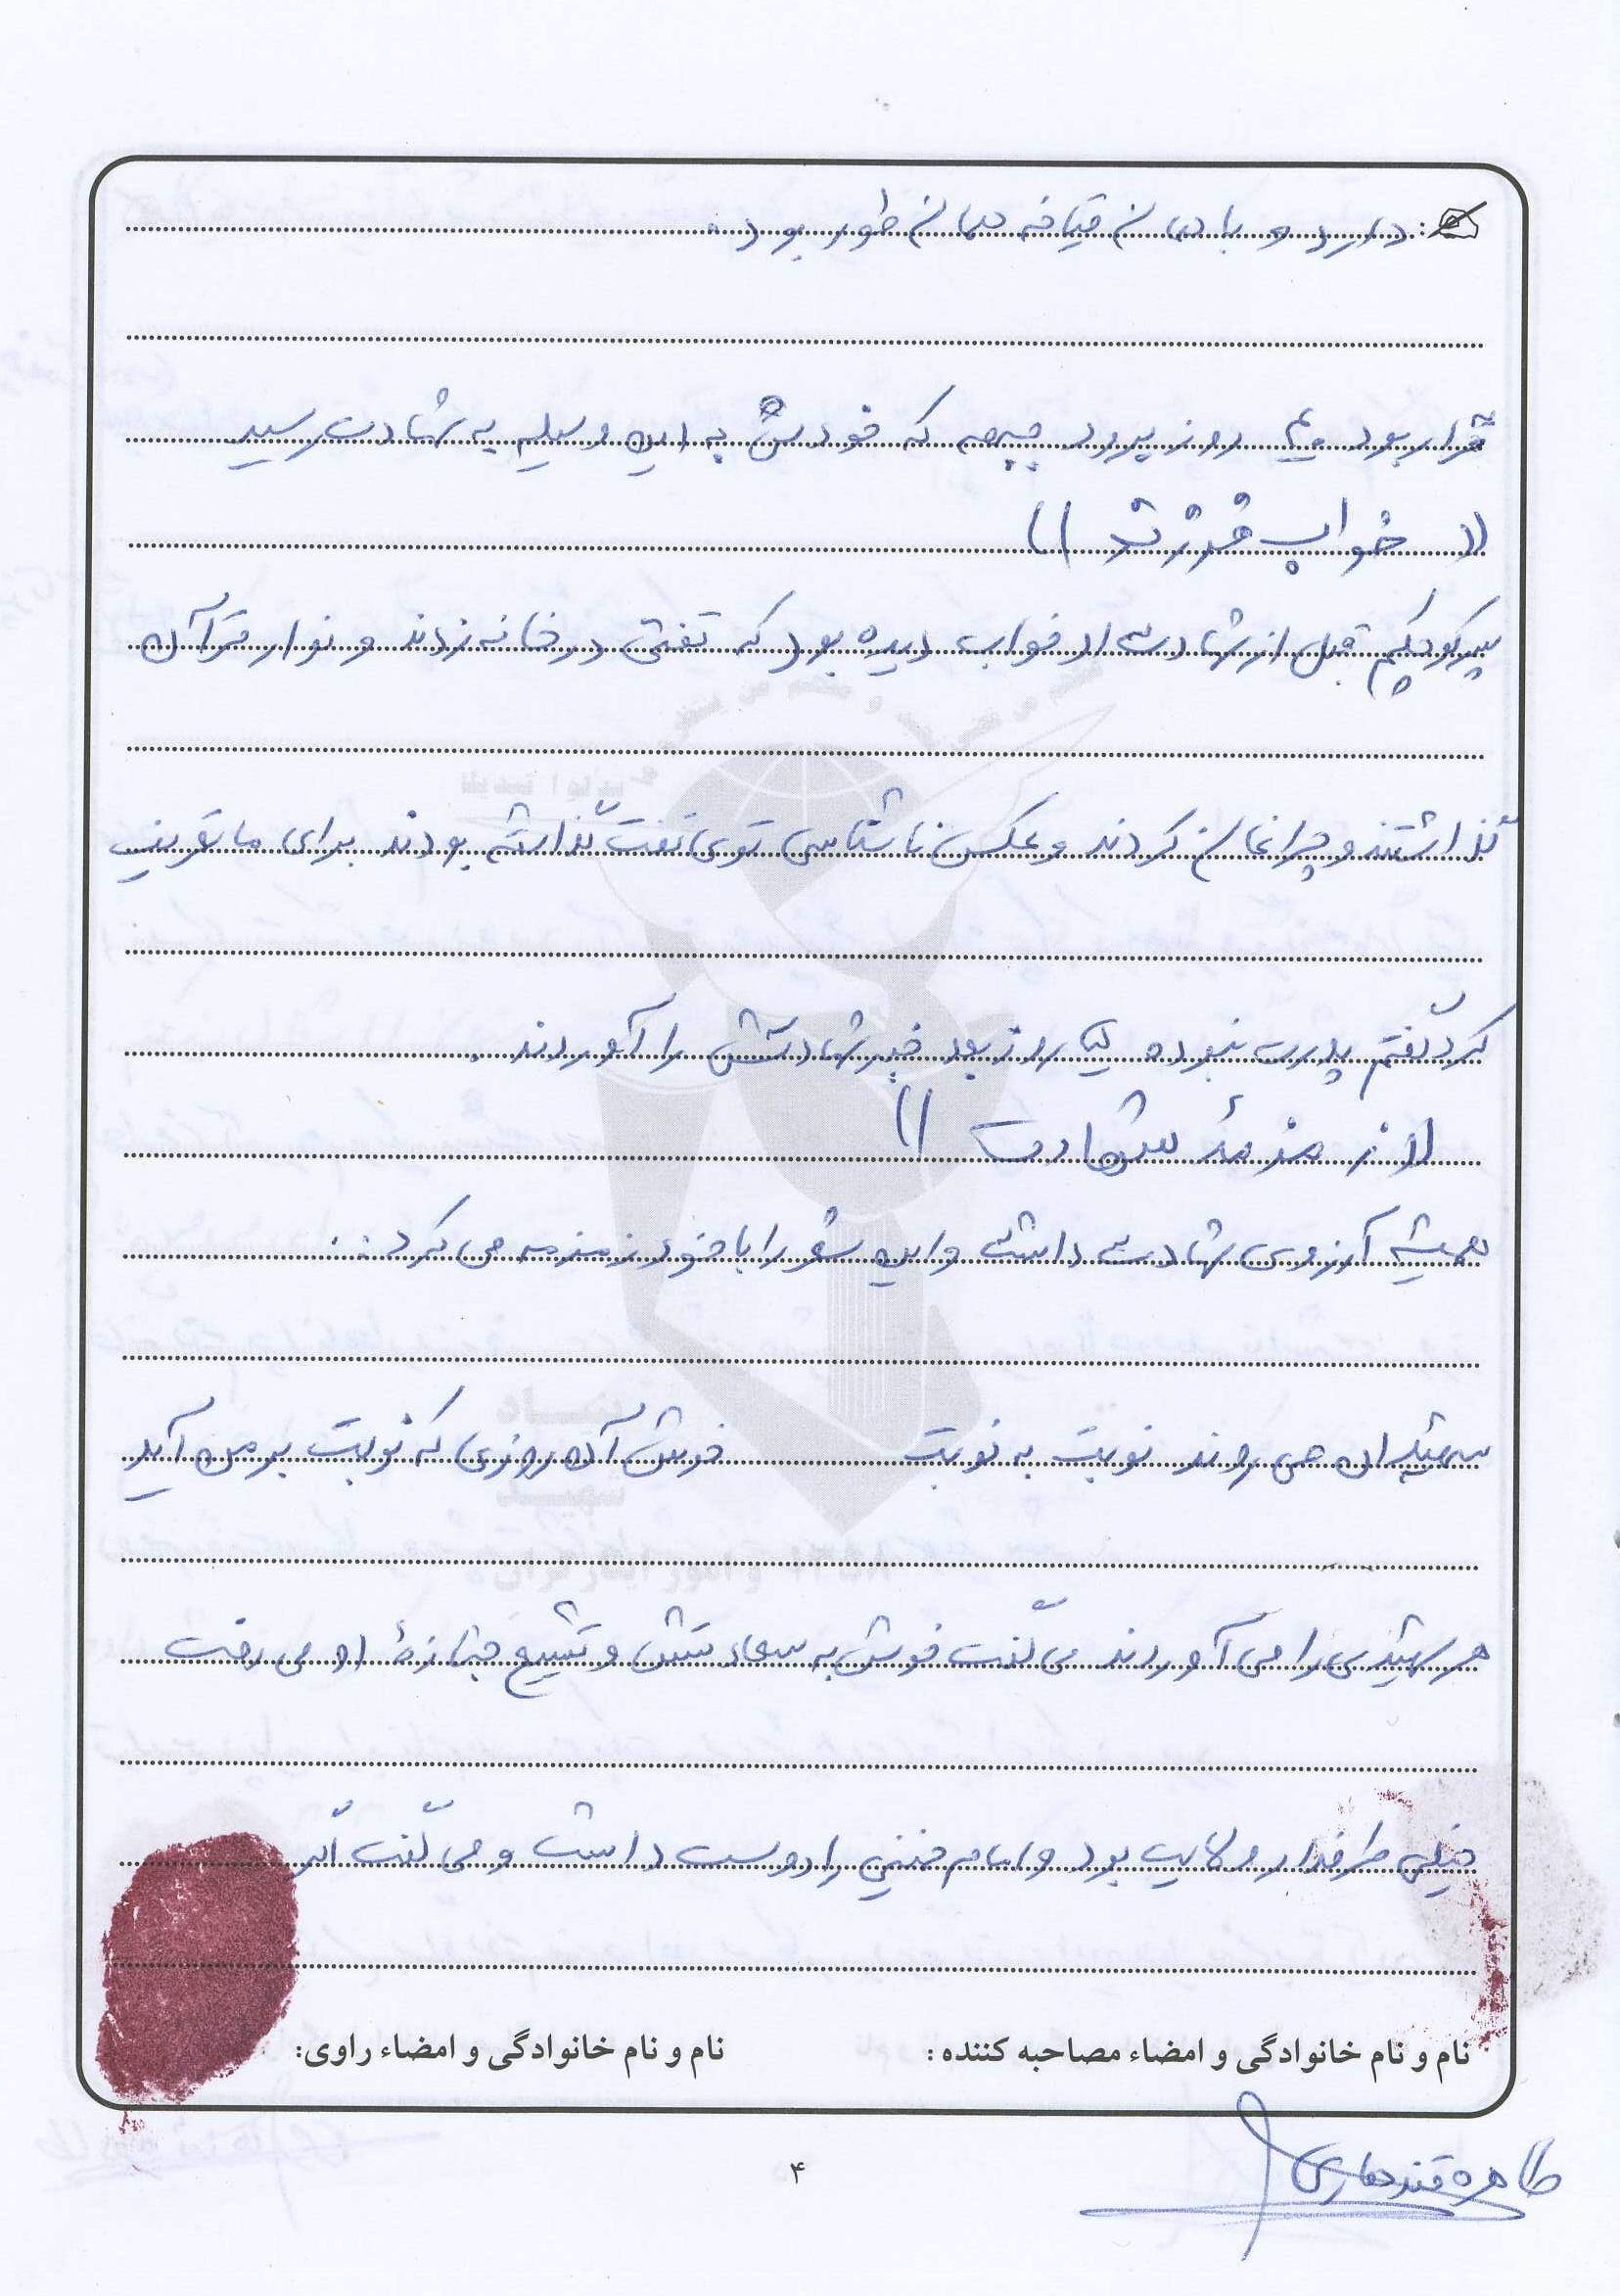 دارد و با همان قیافه همان طور بود.
قرار بود روز برود جبهه که خودش به این وسیله به شهادت رسید
(( خواب فرزند ))
پسر کوچکم قبل از شهادت او خواب دیده بود که تفنگی در خانه زدند و نوار قرآن
گذاشتند و چراغان کردند و عکس ناشناسی توی تفت گذاشته بودند برای ما تعریف
کرد گفتم پدرت نبوده یک روز بعد خبر شهادتش را آوردند.
(( زمزمۀ شهادت ))
همیشه آرزوی شهادت داشت و این شعر را با خود زمزمه می کرد...
شهیدان می روند نوبت به نوبت خوش آن روزی که نوبت بر من آید
هر شهیدی را می آوردند می گفت خوش به سعادتش و تشییع جنازۀ او می رفت
خیلی طرفدار ولایت بود و امام خمینی را دوست داشت و می گفت اگر
نام و نام خانوادگی و امضاء مصاحبه کننده : نام و نام خانوادگی و امضاء راوی:
طاهره قندهاری
۴